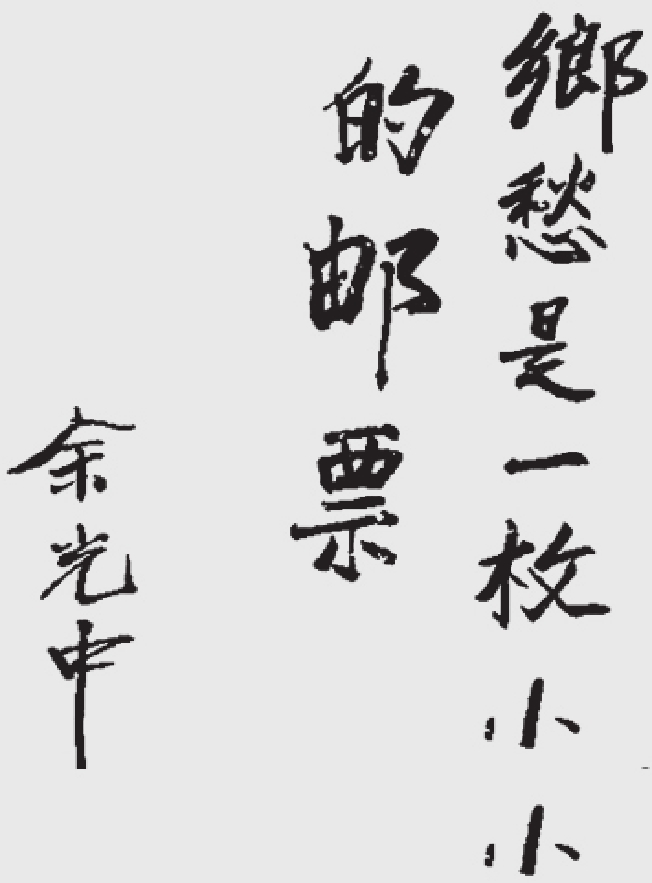 鄉愁是一枚小小
的邮票
余光中